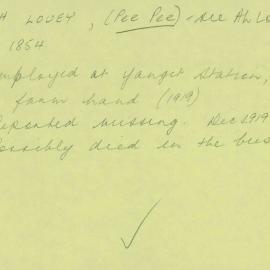 H LOUEY, (Pee Pee) - see AH Lo
1854
mployed at Yanget Station,
farm hand (1919)
eported missing. Dec 1919
ossibly died in the bus